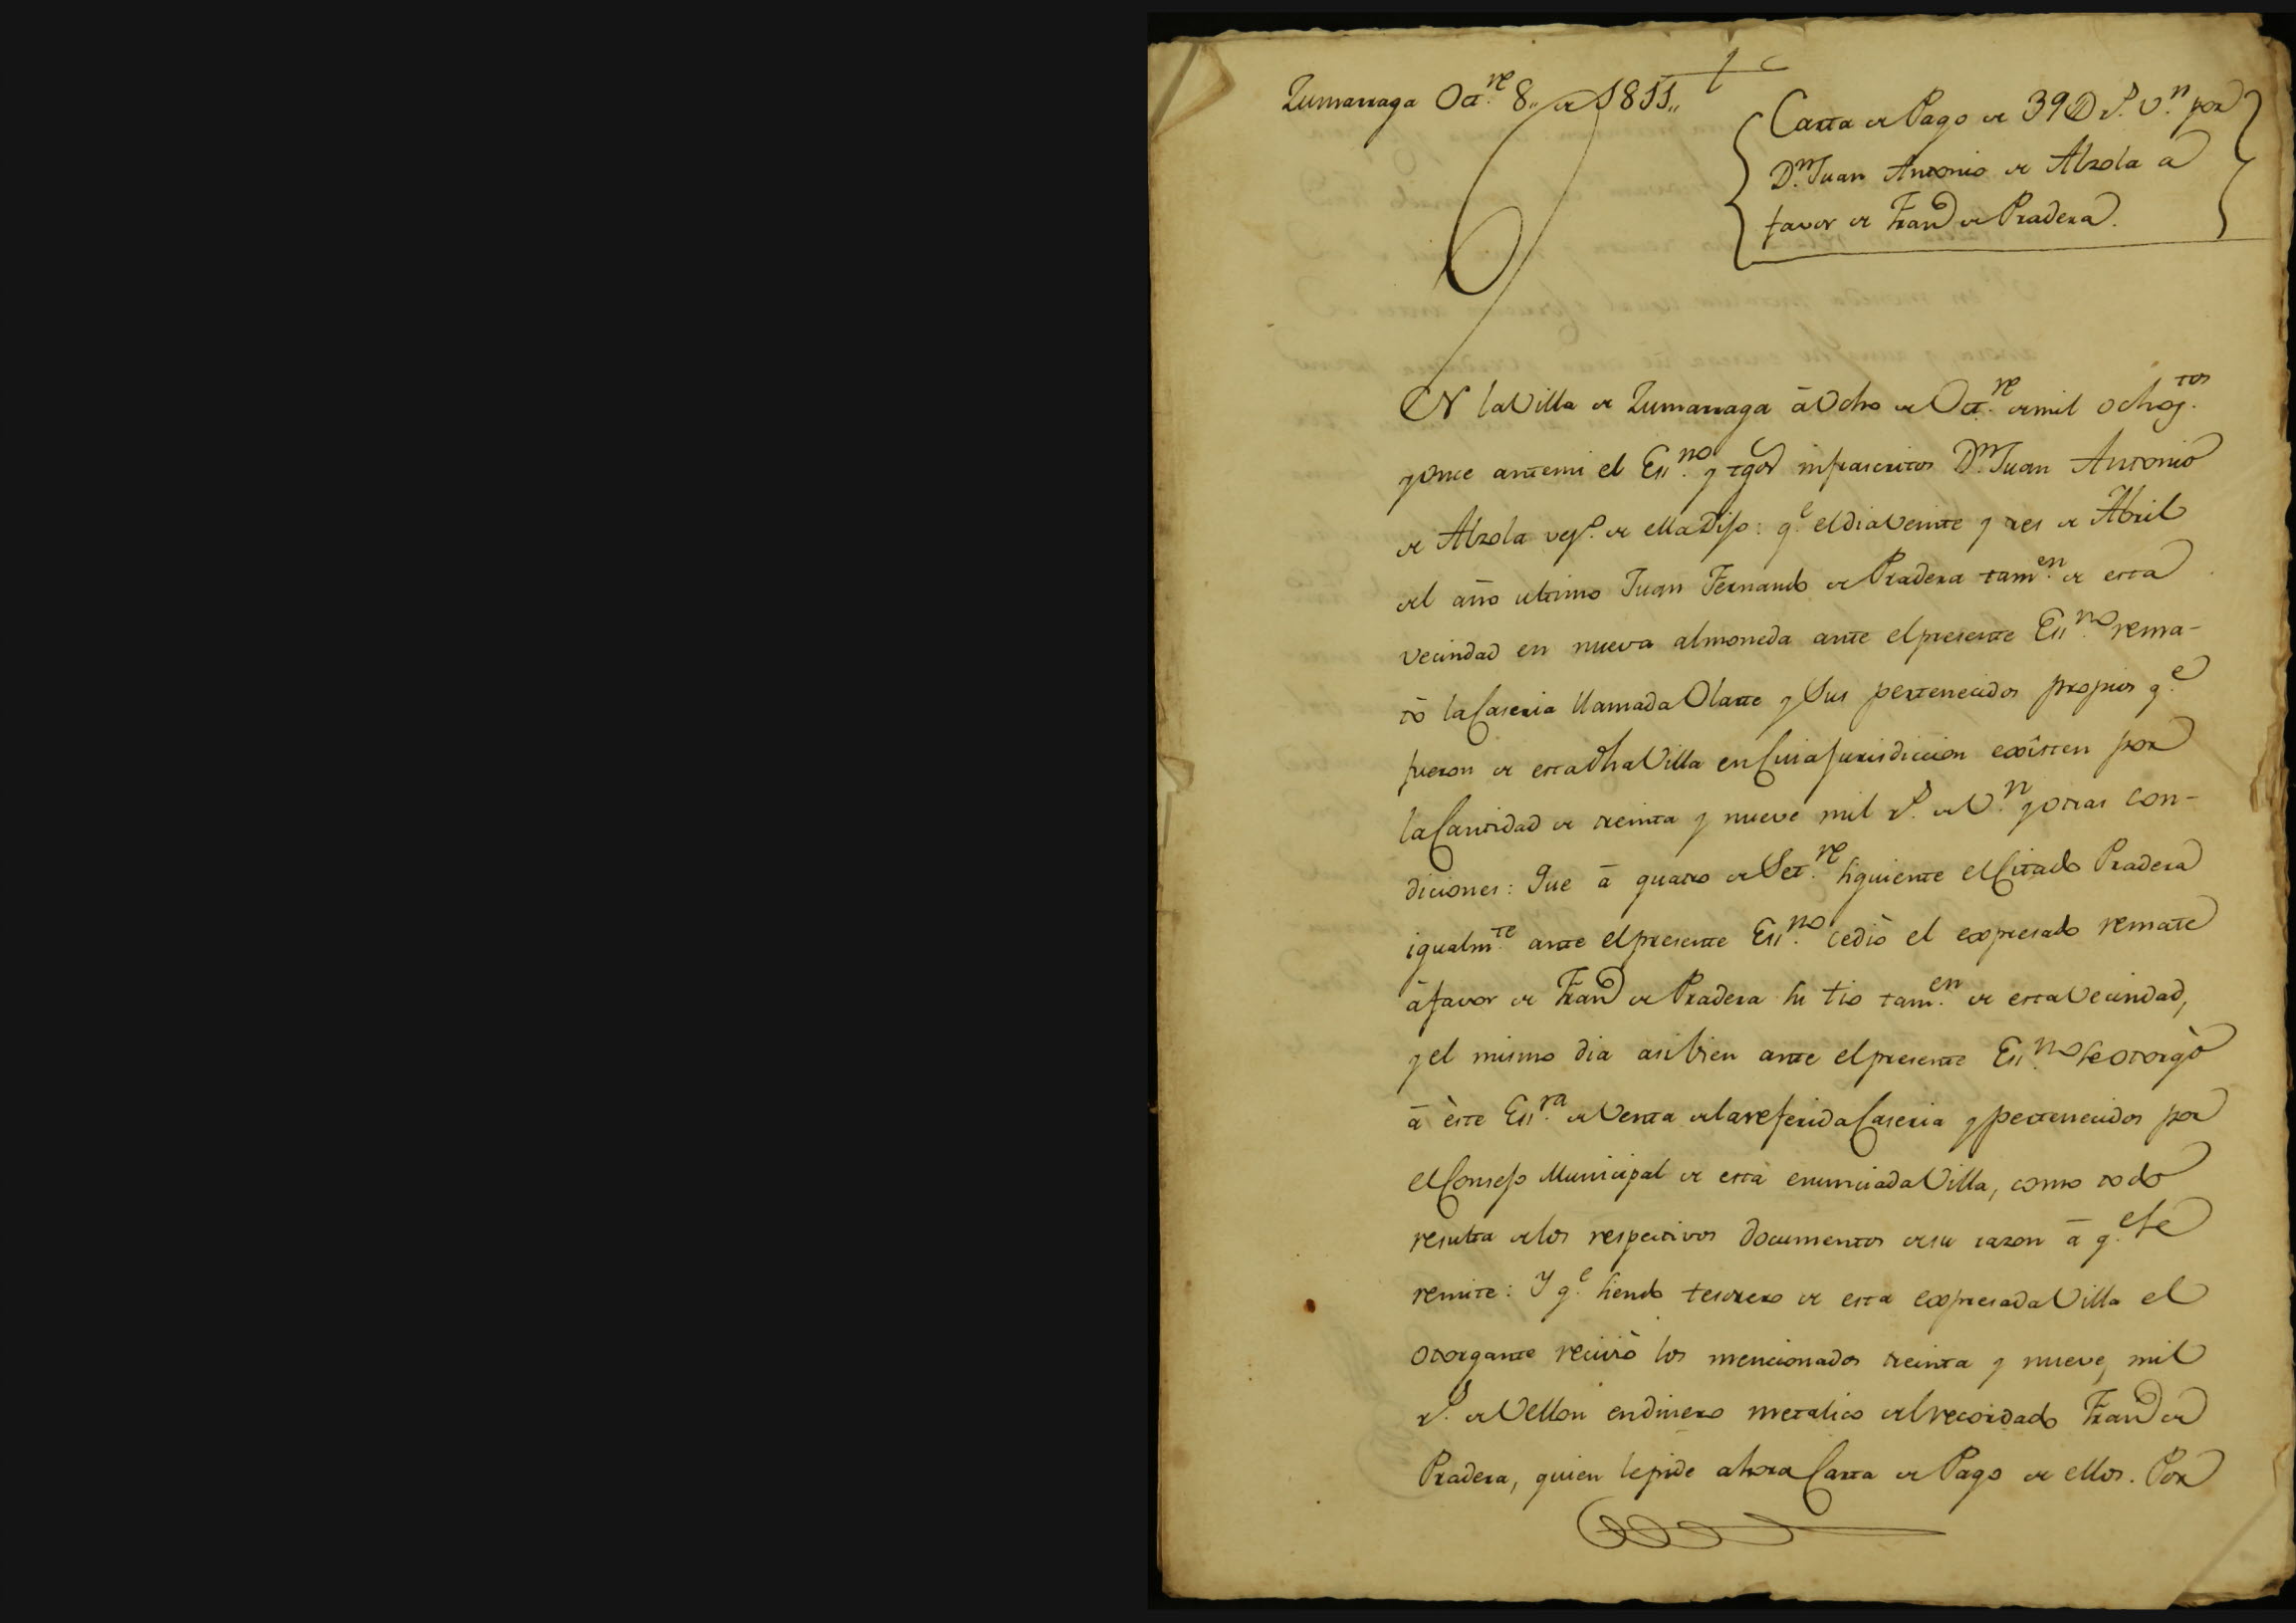 Zumarraga Oct.re 8,, de 1811,,
Carta de Pago de 39D r.s V.n por
D.n Juan Antonio de Alzola a
favor de Fran.co de Pradera.
EN la Villa de Zumarraga à Ocho de Oct.re de mil ochoz.tos
y Once ante mi el Ess.no y tgos infrascritos D.n Juan Antonio
de Alzola vez.o de ella Dijo: q.e el dia Veinte y tres de Abril
del año ultimo Juan Fernando de Pradera tam.en de esta
vecindad en nueva almoneda ante el presente Ess.no rema-
tò la Caseria llamada Olarte y Sus pertenecidos propios q.e
fueron de esta dha Villa en Cuia Jurisdiccion existen por
la Cantidad de treinta y nueve mil r.s de V.n y otras con-
diciones: Que à quatro de Set.re siguiente el Citado Pradera
igualm.te ante el presente Ess.no cediò el expresado remate
à favor de Fran.co de Pradera su tio tam.en de esta Vecindad,
y el mismo dia asi bien ante el presente Ess.no se otorgò
à èste Ess.ra de Venta de la referida Caseria y pertenecidos por
el Consejo Municipal de esta enunciada Villa, como todo
resulta de los respectivos documentos de su razon à q.e se
remite: Y q.e siendo tesorero de esta expresada Villa el
otorgante reciviò los mencionados treinta y nueve mil
r.s de Vellon en dinero metalico del recordado Fran.co de
Pradera, quien le pide ahora Carta de Pago de ellos. Por